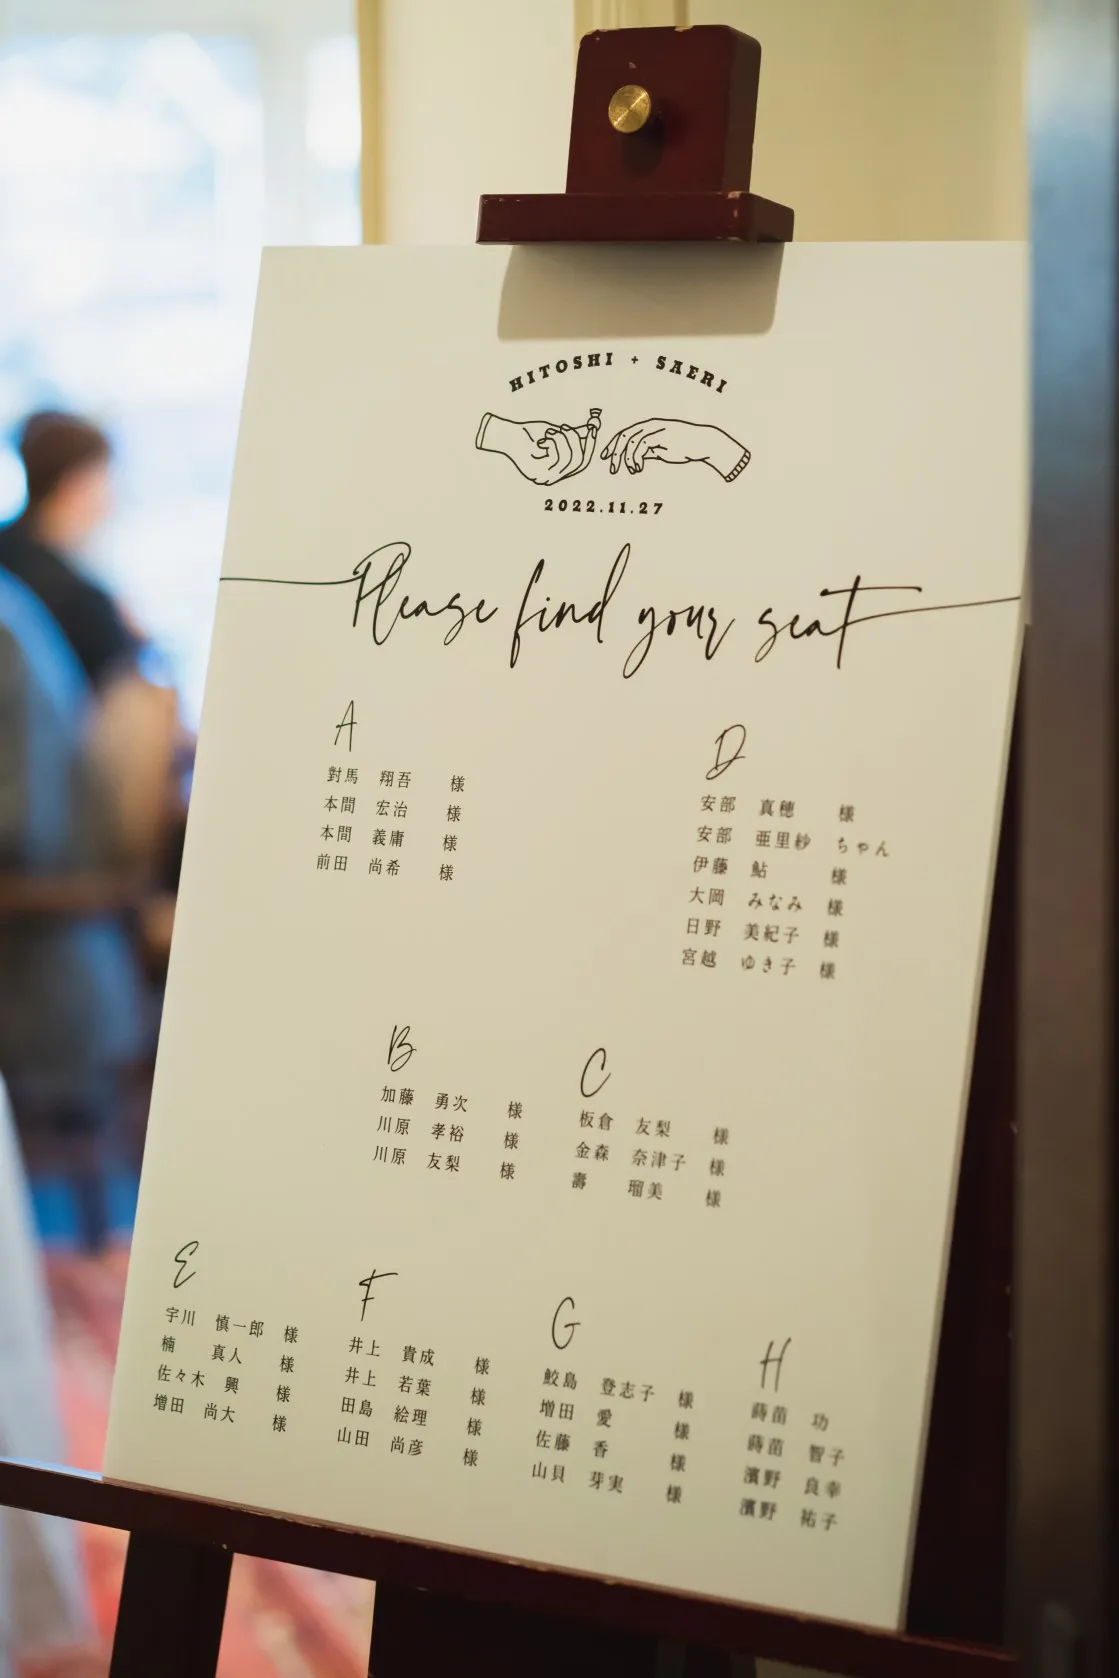 HITOSHI + SAERI
2022.11.27
Please find your seat
A
對馬 翔吾 様
本間 宏治 様
本間 義庸 様
前田 尚希 様
D
安部 真穂 様
安部 亜里紗 ちゃん
伊藤 鮎 様
大岡 みなみ 様
日野 美紀子 様
宮越 ゆき子 様
B
加藤 勇次 様
川原 孝裕 様
川原 友梨 様
C
板倉 友梨 様
金森 奈津子 様
壽 瑠美 様
E
宇川 慎一郎 様
楠 真人 様
佐々木 興 様
増田 尚大 様
F
井上 貴成 様
井上 若葉 様
田島 絵理 様
山田 尚彦 様
G
鮫島 登志子 様
増田 愛 様
佐藤 香 様
山貝 芽実 様
H
蒔苗 功
蒔苗 智子
濱野 良幸
濱野 祐子